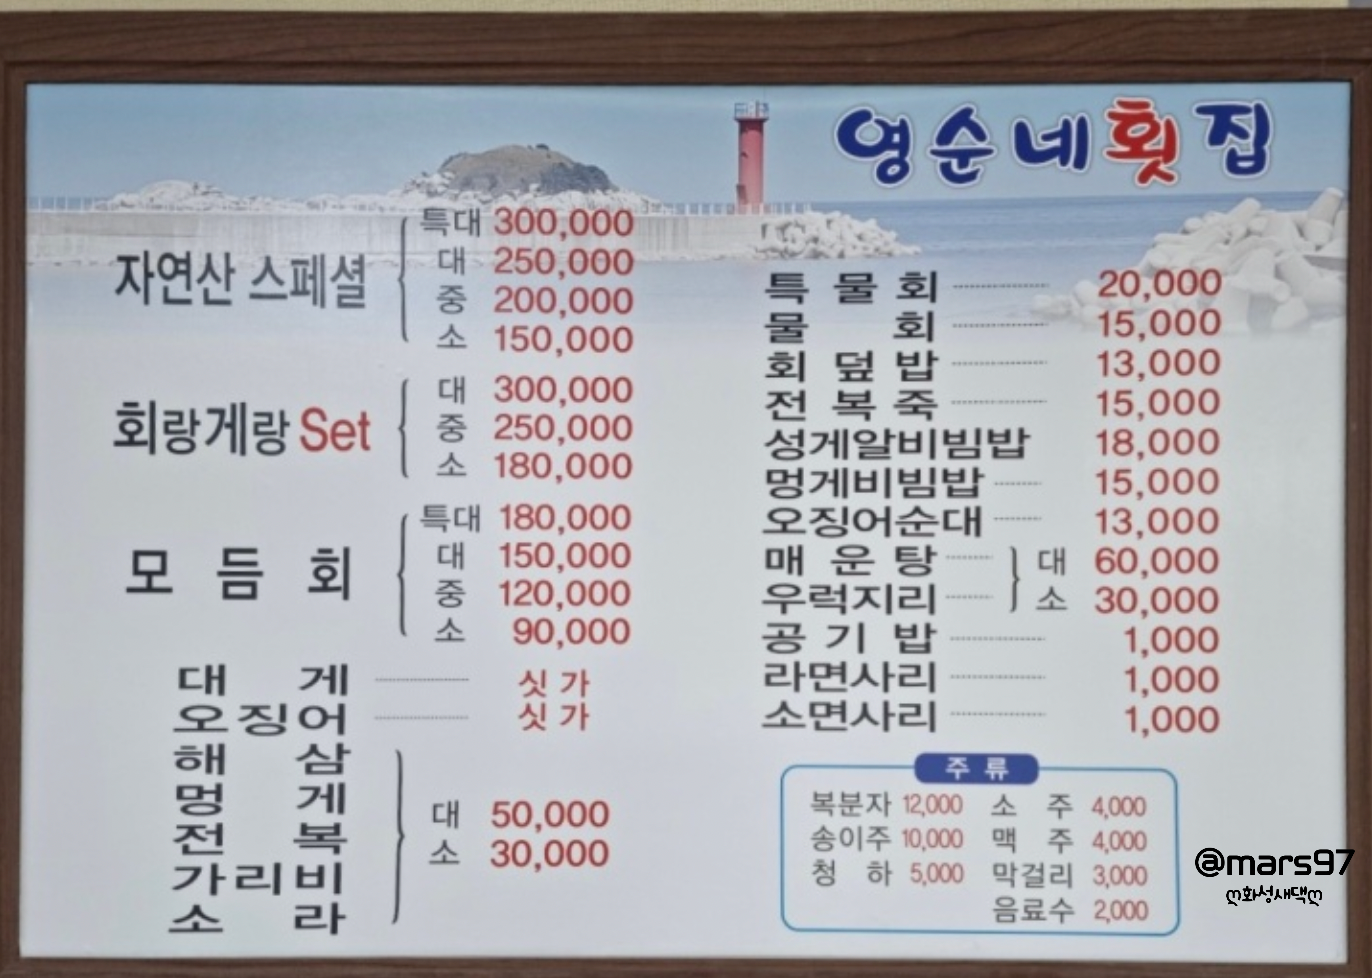 영순네횟집
자연산 스페셜
특대 300,000
대 250,000
중 200,000
소 150,000
회랑게랑 Set
대 300,000
중 250,000
소 180,000
모듬회
특대 180,000
대 150,000
중 120,000
소 90,000
대게 싯가
오징어 싯가
해삼
멍게
전복
가리비
소라
대 50,000
소 30,000
특물회 20,000
물회 15,000
회덮밥 13,000
전복죽 15,000
성게알비빔밥 18,000
멍게비빔밥 15,000
오징어순대 13,000
매운탕
우럭지리
대 60,000
소 30,000
공기밥 1,000
라면사리 1,000
소면사리 1,000
주류
복분자 12,000 소주 4,000
송이주 10,000 맥주 4,000
청하 5,000 막걸리 3,000
음료수 2,000
@mars97
ღ화성새댁ღ